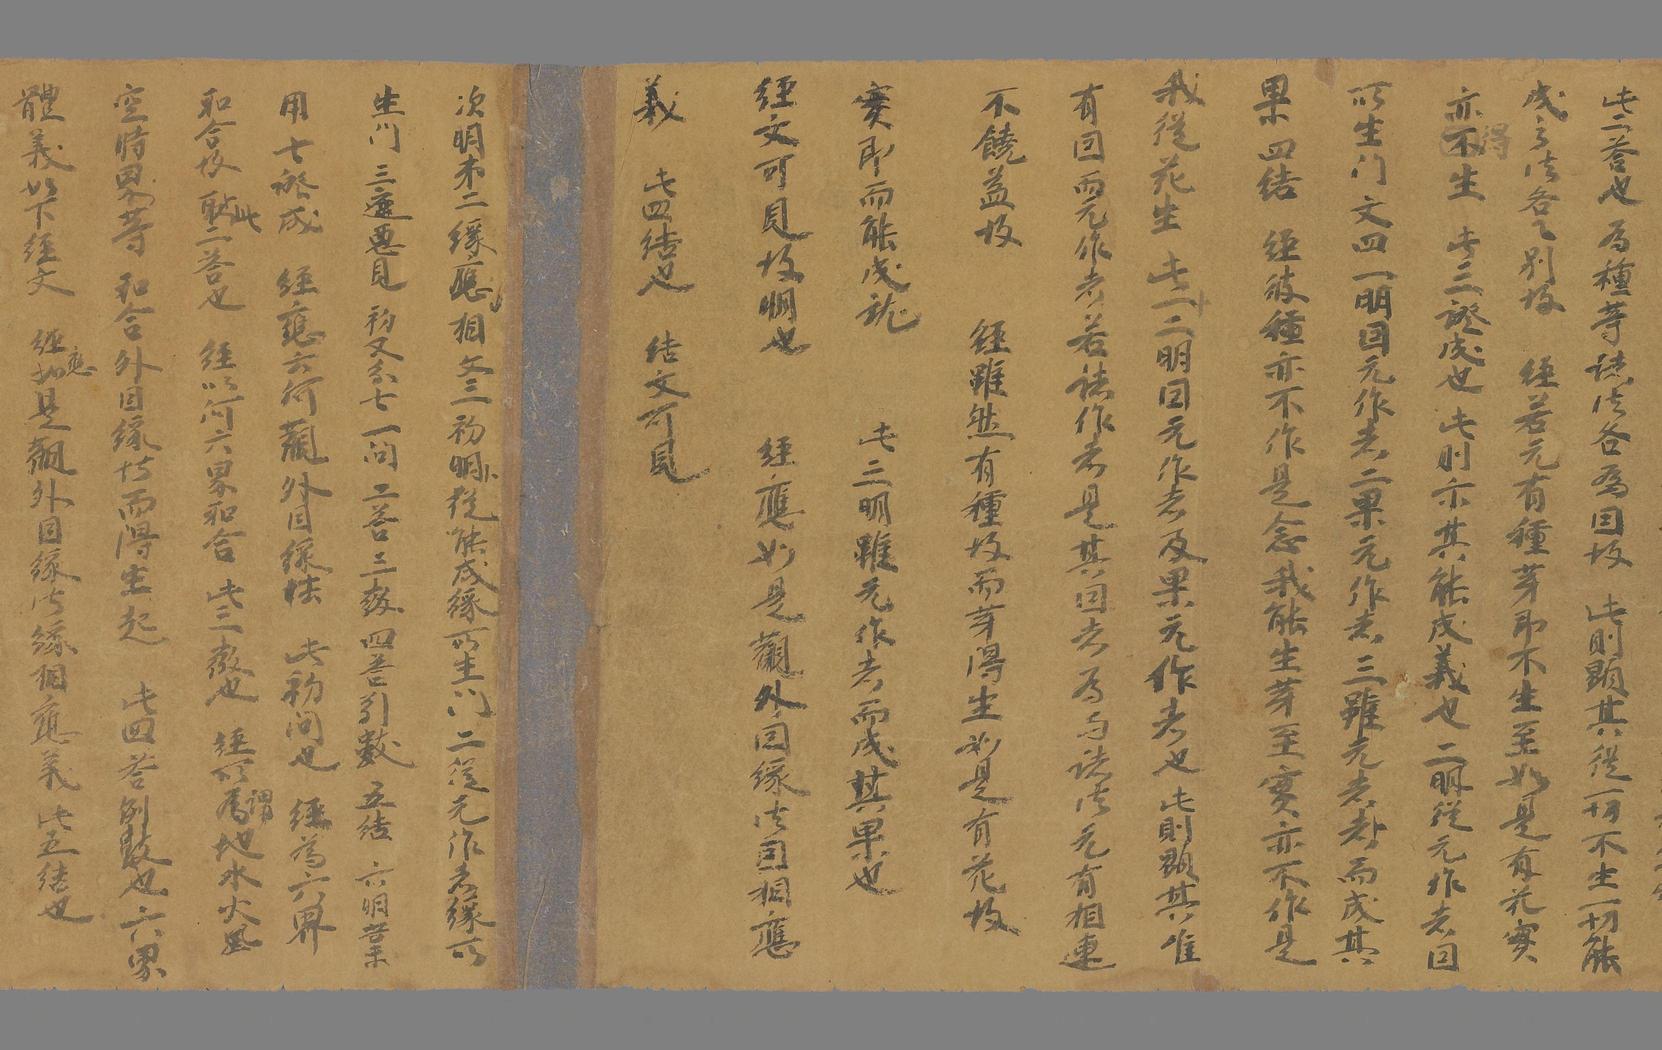 此二答也 為種等諸法各為因故 此則顯其從一切不生一切能
成之法各之別故 經若无有種芽即不生至如是有花實
亦不得生 此三證成也 此則示其能成義也 二明從无作者因
所生门 文四 一明因无作者 二果无作者 三雖无者而成其
果 四結 經彼種亦不作是念我能生芽至實亦不作是
我從花生 此一二明因无作者及果无作者也 此則顯其唯
有因而无作者 若諸作者是其因者 為与諸法无有相連
不饒益故 經雖然有種故而芽得生如是有花故
實即而能成就 此三明雖无作者而成其果也
經文可見故明也 經應如是觀外因緣法因相應
義 此四結也 結文可見
次明第二緣應相 文三 初明從能成緣所生门 二從无作者緣所
生门 三遮惡見 初又分七 一问 二答 三教 四答引數 五結 六明業
用 七證成 經應云何觀外因緣性 此初问也 經為六界
和合故 此二答也 經以何六界和合 此三教也 經所謂地水火風
空時界等和合外因緣法而得生起 此四答例數也 六界
體義如下經文 經應如是觀外因緣法緣相應義 此五結也